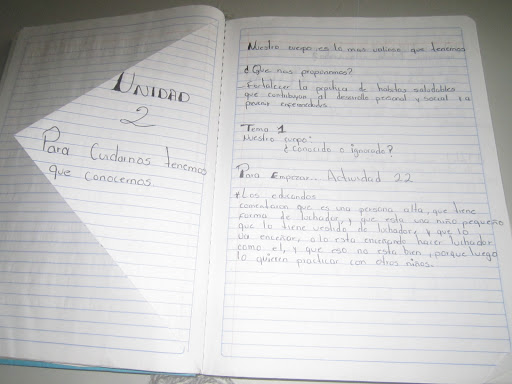 UNIDAD
2
Para Cuidarnos tenemos
que conocernos.
Nuestro cuerpo es lo mas valioso que tenemos
¿Que nos proponemos?
Fortalecer la practica de habitos saludables
que contribuyan al desarrollo personal y social y a
prevenir enfermedades
Tema 1
Nuestro cuerpo:
¿Conocido o ignorado?
Para Empezar. Actividad 22
Los educandos
comentaron que es una persona alta, que tiene
forma de luchador, y que esta una niño pequeño
que lo tiene vestido de luchador, y que lo
va enseñar, a lo esta enseñando hacer luchador
como el, y que eso no esta bien, porque luego
lo quieren practicar con otros niños.